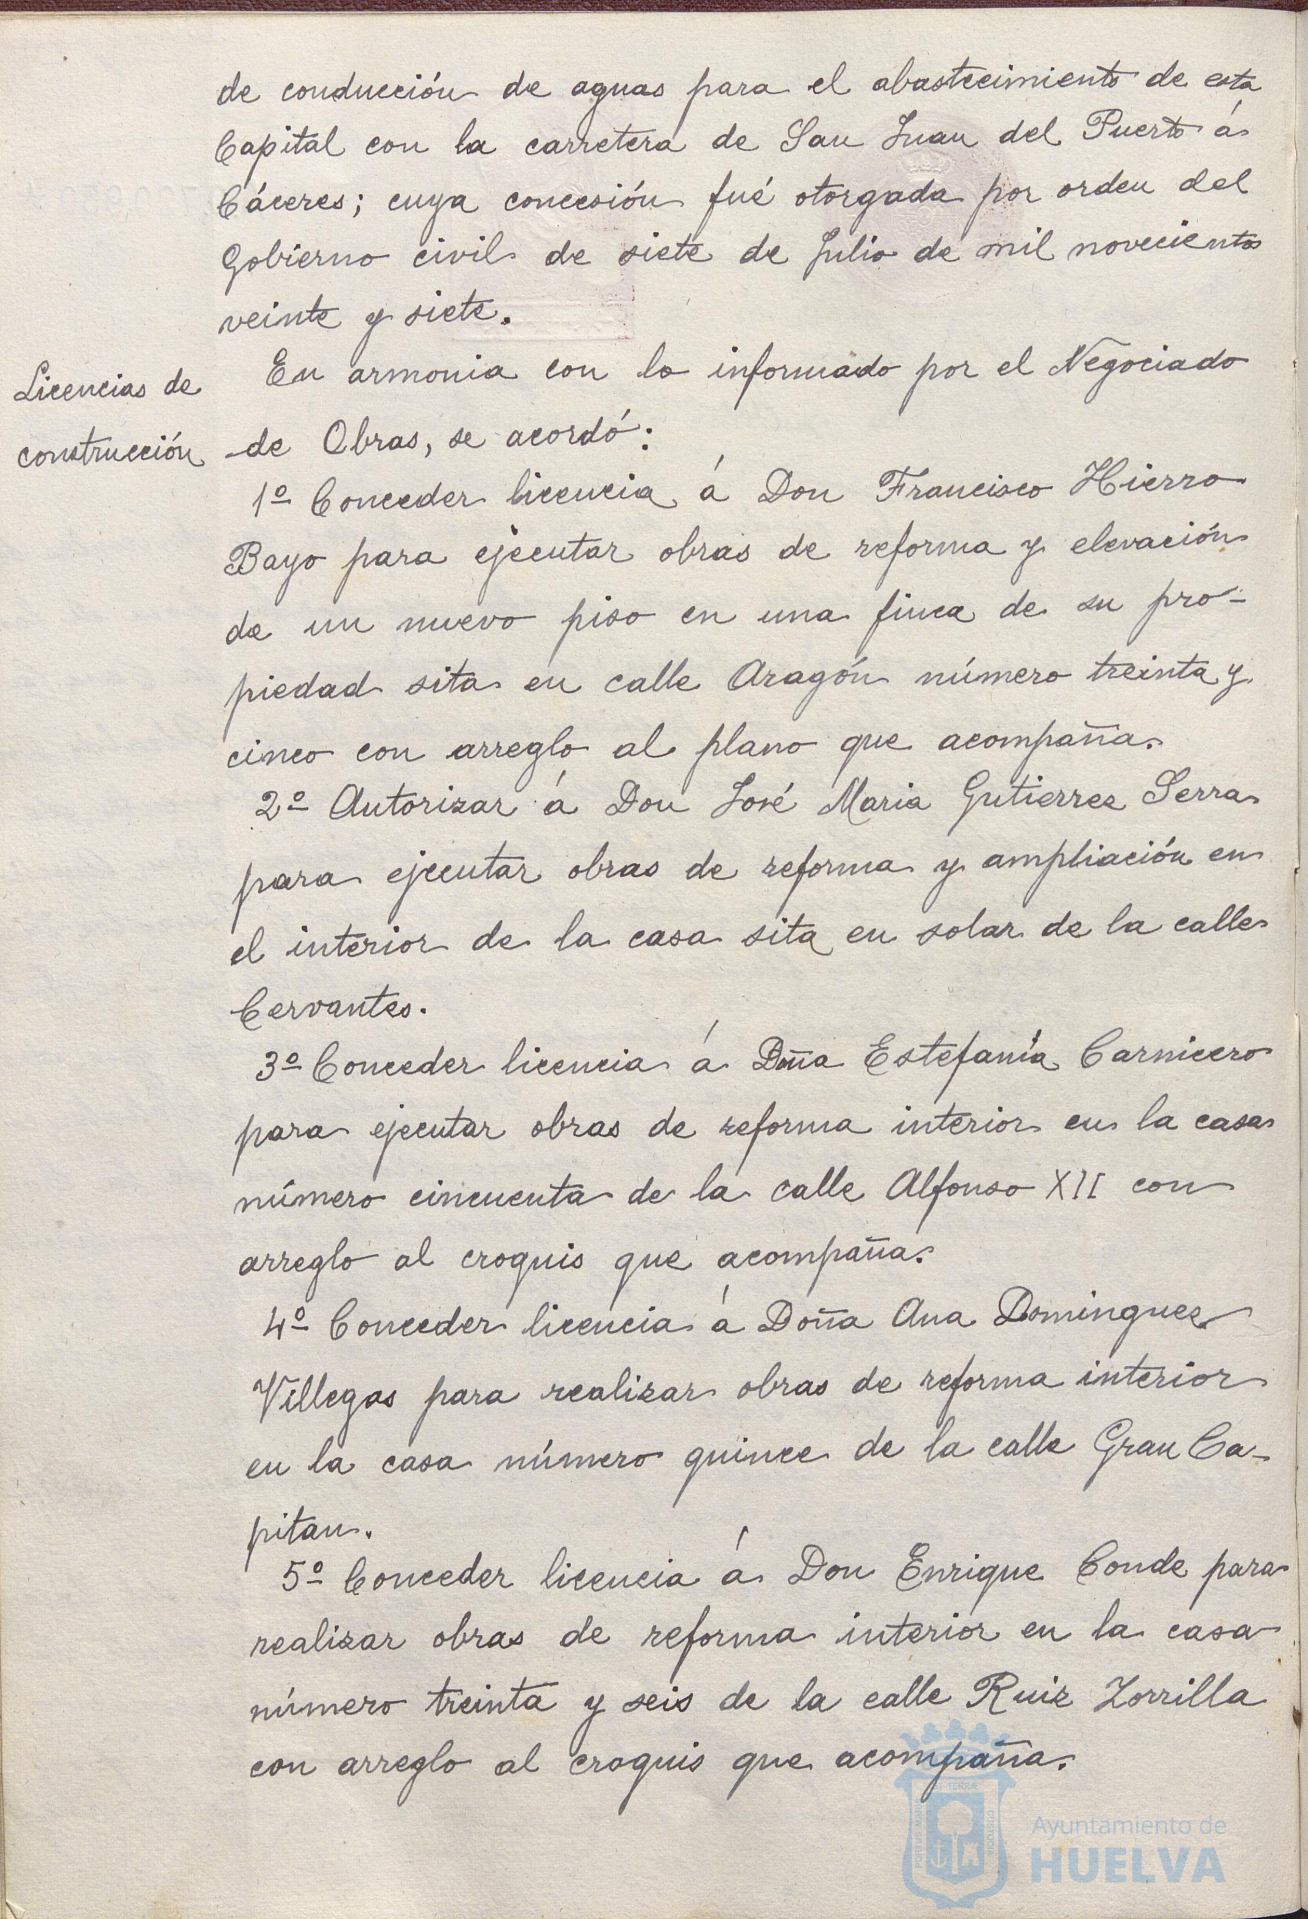 de conducción de aguas para el abastecimiento de esta
Capital con la carretera de San Juan del Puerto á
Cáceres; cuya concesión fué otorgada por orden del
Gobierno civil de siete de Julio de mil novecientos
veinte y siete.
Licencias de
construcción
En armonia con lo informado por el Negociado
de Obras, se acordó:
1º Conceder licencia á Don Francisco Hierro
Bayo para ejecutar obras de reforma y elevación
de un nuevo piso en una finca de su pro-
piedad sita en calle Aragón número treinta y
cinco con arreglo al plano que acompaña.
2º Autorizar á Don José Maria Gutierrez Serra
para ejecutar obras de reforma y ampliación en
el interior de la casa sita en solar de la calle
Cervantes.
3º Conceder licencia á Doña Estefanía Carnicero
para ejecutar obras de reforma interior en la casa
número cincuenta de la calle Alfonso XII con
arreglo al croquis que acompaña.
4º Conceder licencia á Doña Ana Dominguez
Villegas para realizar obras de reforma interior
en la casa número quince de la calle Gran Ca-
pitan.
5º Conceder licencia á Don Enrique Conde para
realizar obras de reforma interior en la casa
número treinta y seis de la calle Ruiz Zorrilla
con arreglo al croquis que acompaña.
Ayuntamiento de
HUELVA